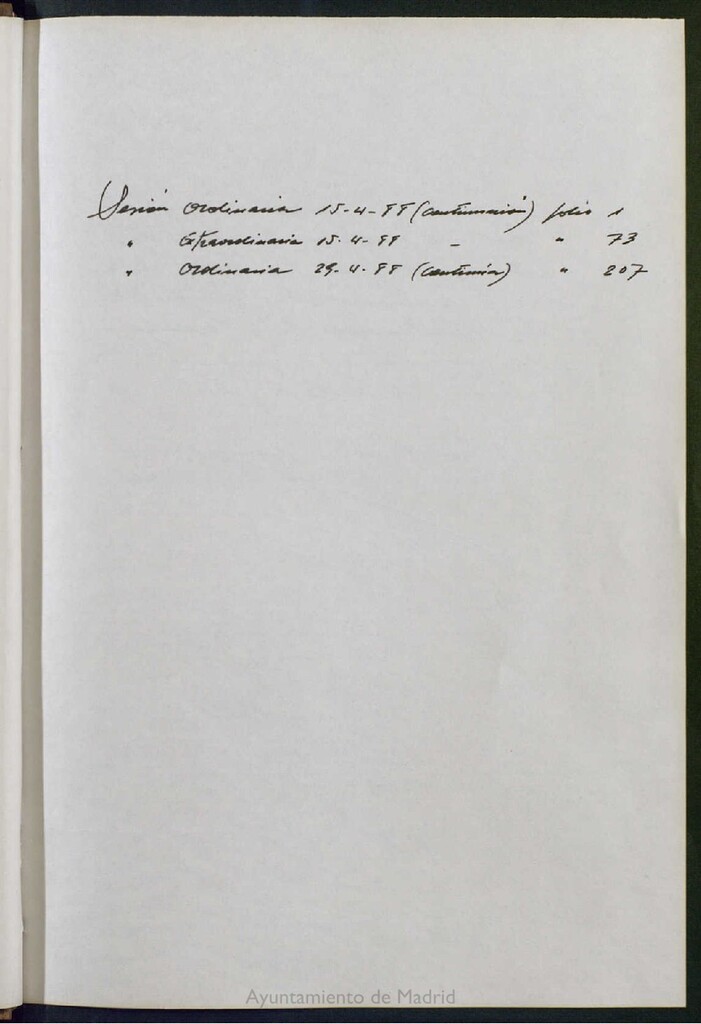 Sesión Ordinaria 15-4-99 (continuación) folio 1
" Extraordinaria 15-4-99 - " 73
" Ordinaria 29-4-99 (continúa) " 207
Ayuntamiento de Madrid